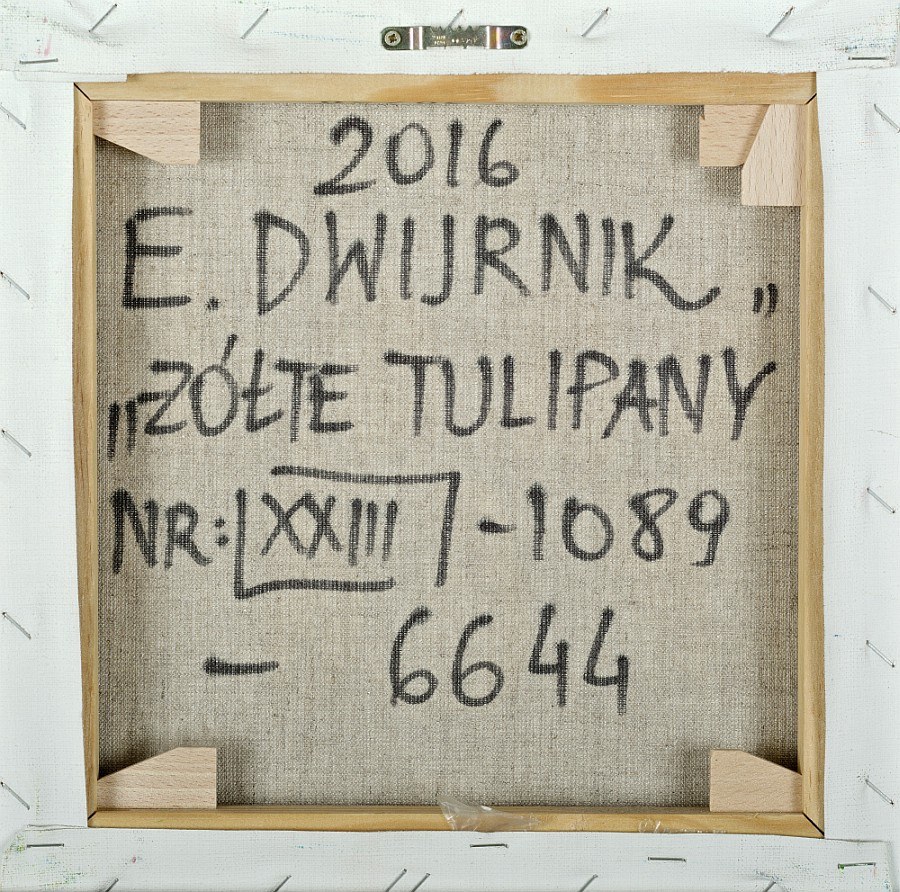 2016
E. DWIJRNIK „
„ZÓŁTE TULIPANY
NR: XXIII - 1089
- 6644